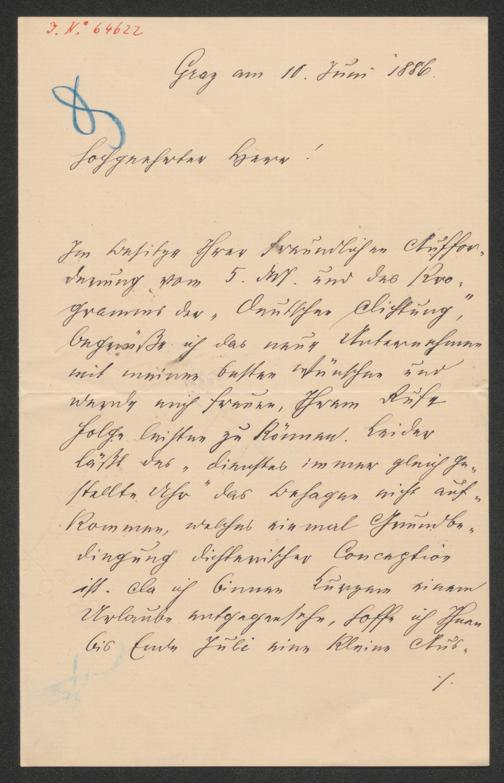 J. N.° 64622
Graz am 10. Juni 1886.
Hochgeehrter Herr!
Im Besitze Ihrer freundlichen Auffor-
derung vom 5. d. M. und des Pro-
gramms der „Deutschen Dichtung",
begrüße ich das neue Unternehmen
mit meinen besten Wünschen und
werde mich freuen, Ihrem Rufe
Folge leisten zu können. Leider
läßt des „Dienstes immer gleich ge-
stellte Uhr" das Behagen nicht auf-
kommen, welches einmal Grundbe-
dingung dichterischer Conception
ist. Da ich binnen Kurzem einem
Urlaube entgegensehe, hoffe ich Ihnen
bis Ende Juli eine kleine Aus-
./.